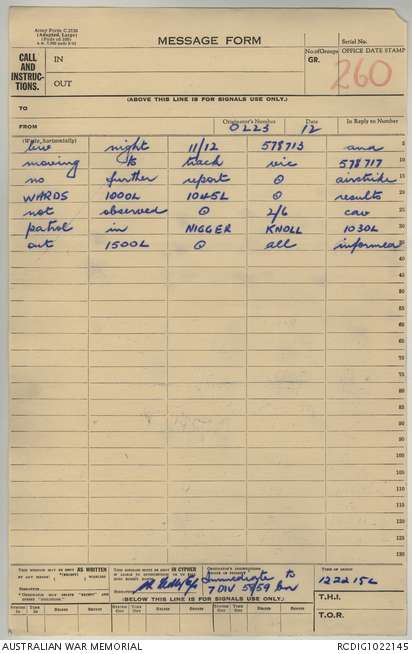 Army Form C.2128
(Adapted, Large)
(Pads of 100)
MESSAGE FORM
Serial No.
CALL
AND
INSTRUC-
TIONS.
IN
OUT
No. of Groups
GR.
OFFICE DATE STAMP
260
(ABOVE THIS LINE IS FOR SIGNALS USE ONLY.)
TO
FROM
Originator's Number
OLL3
Date
12
In Reply to Number
(Write horizontally)
live night 11/12 578713 and 5
moving to track vic 578717 10
no further report ⊙ airstrike 15
WARDS 1000L 1045L ⊙ results 20
not observed ⊙ 2/6 cav 25
patrol in NIGGER KNOLL 1030L 30
out 1500L ⊙ all informed 35
40
45
50
55
60
65
70
75
80
85
90
95
100
105
110
115
120
125
130
THIS MESSAGE MAY BE SENT AS WRITTEN
BY ANY MEANS (EXCEPT) WIRELESS
SIGNATURE
THIS MESSAGE MUST BE SENT IN CIPHER
SIGNATURE
ORIGINATOR'S INSTRUCTIONS
DEGREE OF PRIORITY
Immediate to
7 DIV 57/59 Bn
TIME OF ORIGIN
122215L
T.H.I.
T.O.R.
(BELOW THIS LINE IS FOR SIGNALS USE ONLY.)
SYSTEM IN TIME IN READER SENDER SYSTEM OUT TIME OUT READER SENDER SYSTEM OUT TIME OUT READER SENDER
AUSTRALIAN WAR MEMORIAL RCDIG1022145